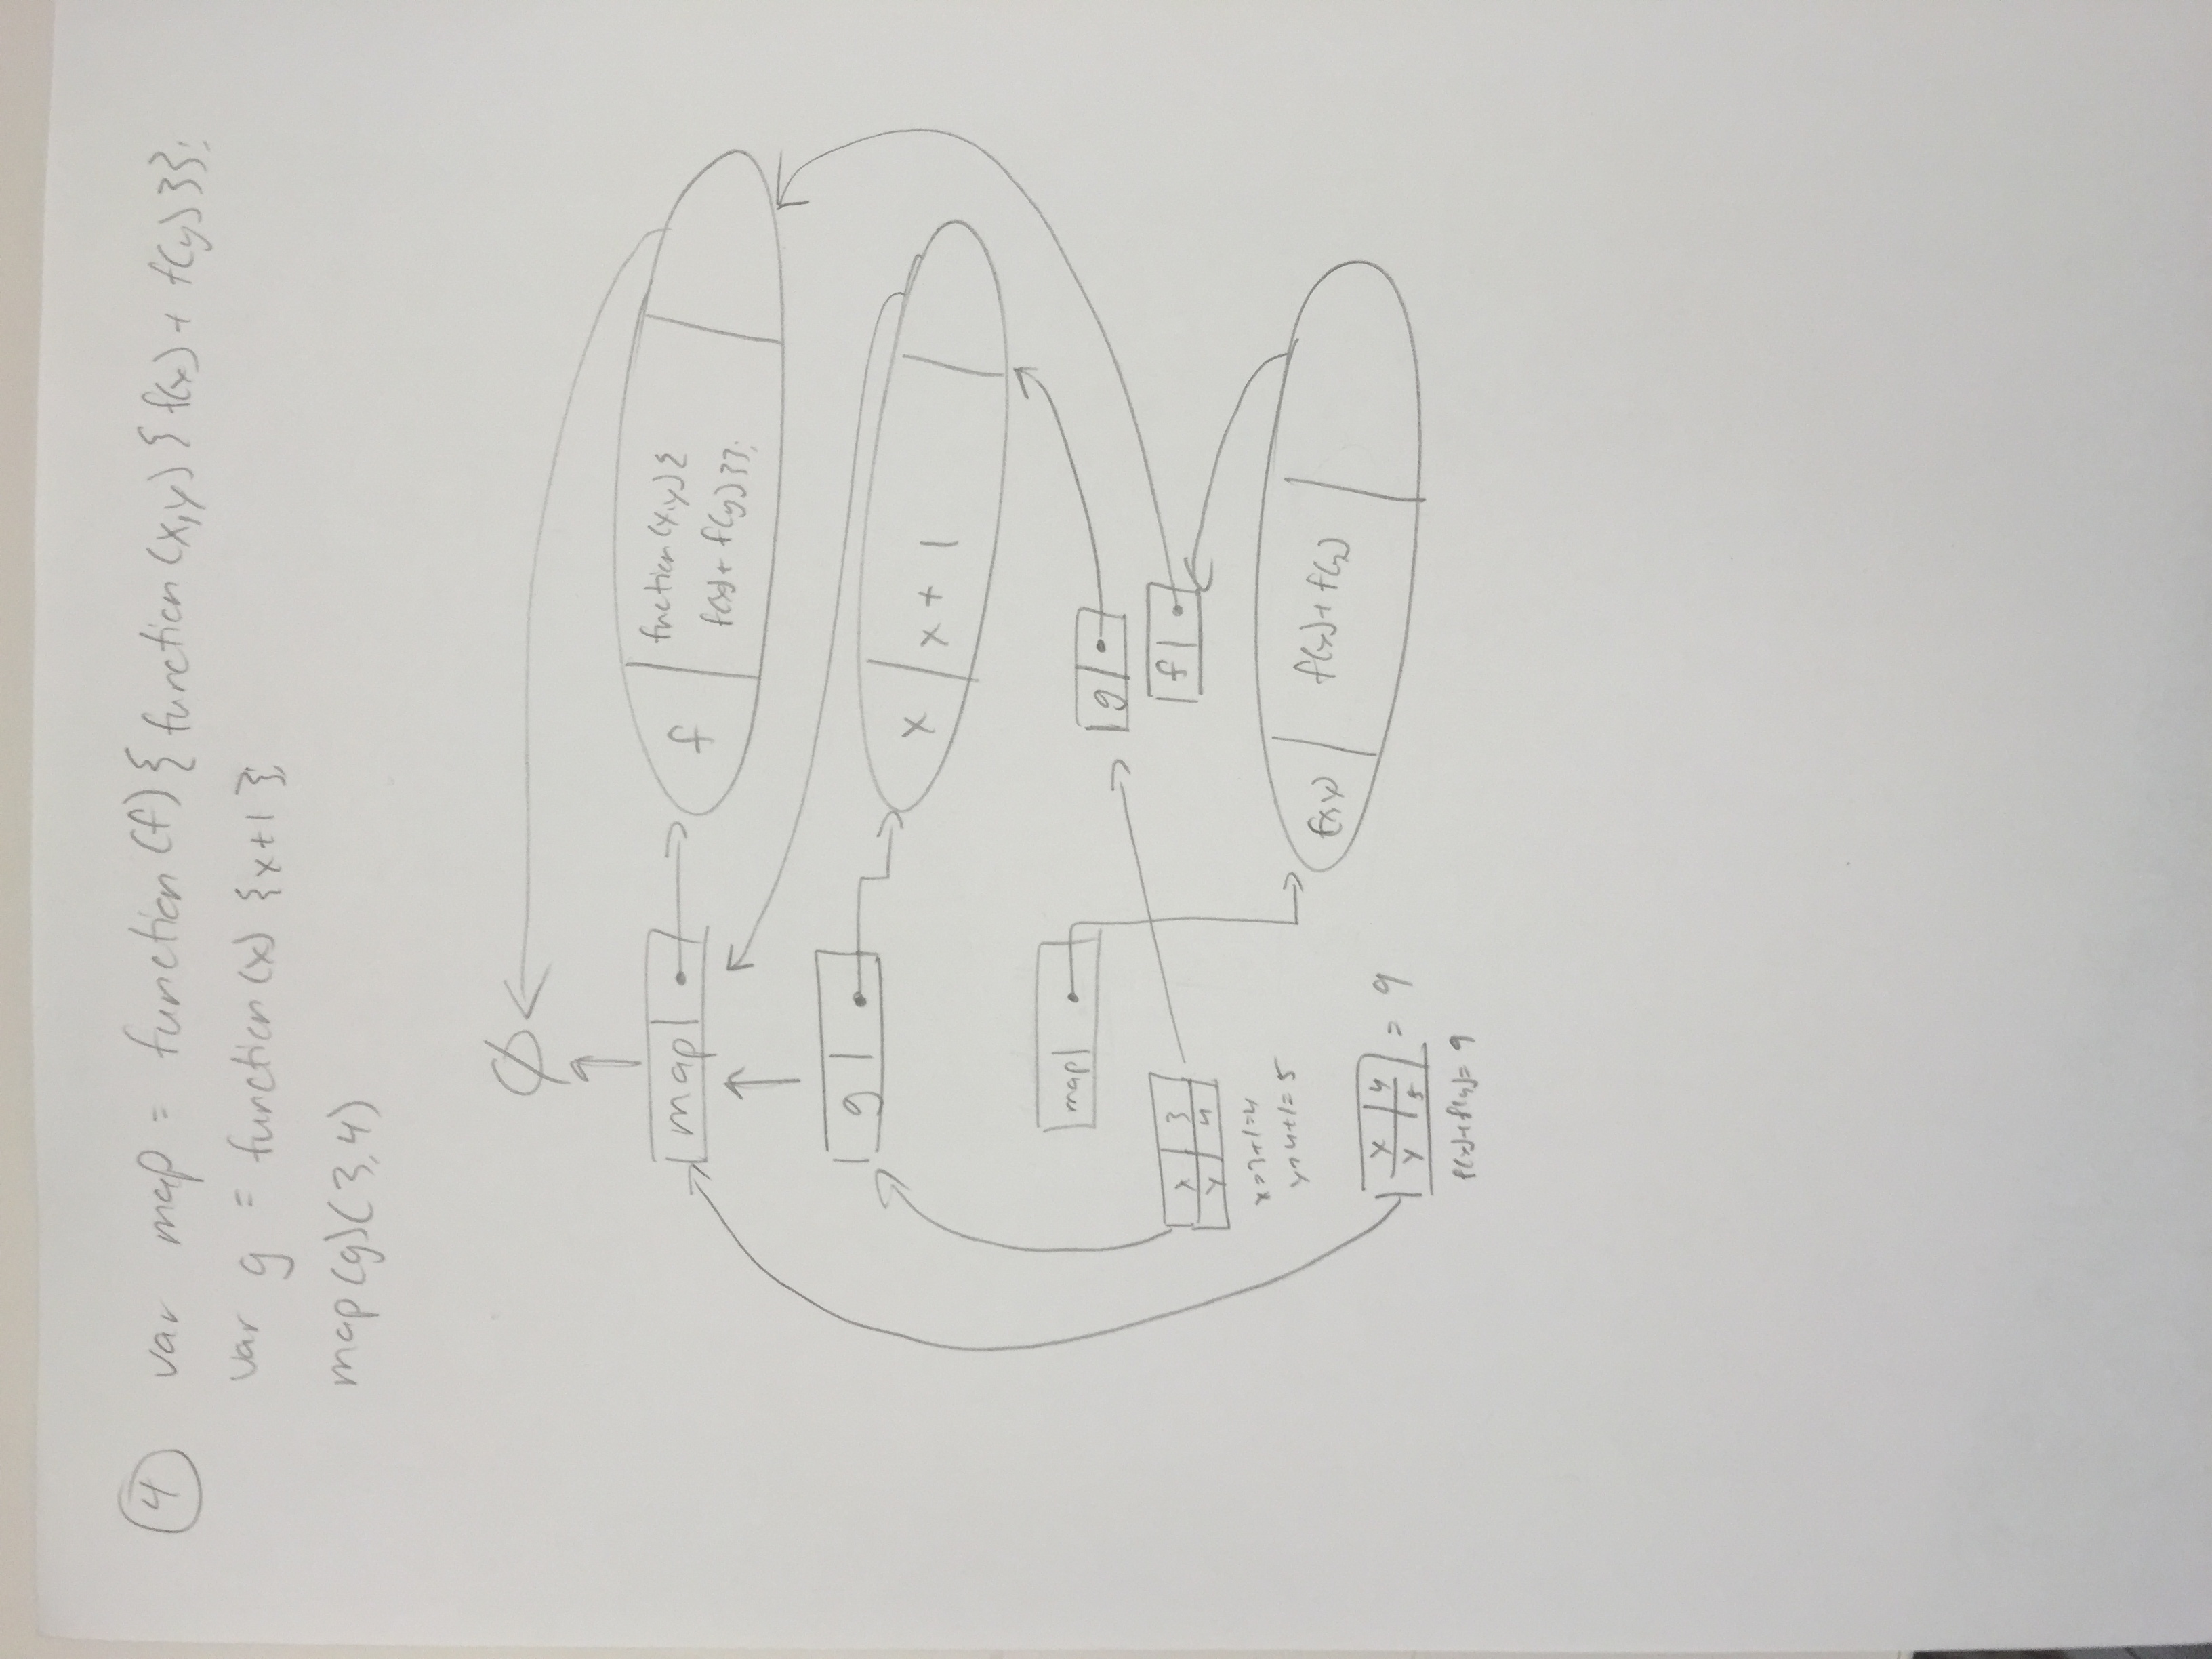 4 var map = function(f){function(x,y){f(x)+f(y)}};
var g = function(x){x+1};
map(g)(3,4)
∅
map
f
fnction(x,y){
f(x)+f(y)}};
g
x x+1
map
g
x 3
f
y 4
x=3+1=4
y=4+1=5
(x,y) f(x)+f(y)
x 4
y 5
= 9
f(x)+f(y)=9